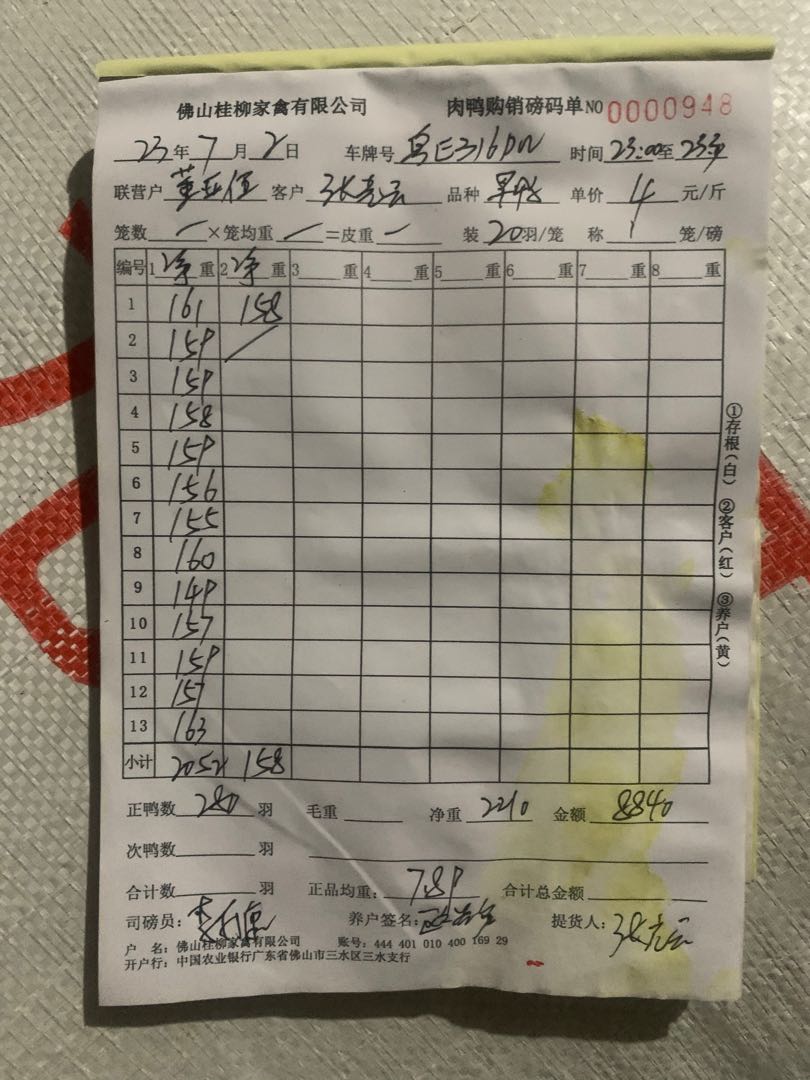 佛山桂柳家禽有限公司 肉鸭购销磅码单NO 0000948
23年7月2日 车牌号 粤E316DW 时间23:00至
联营户 客户 品种 单价 4 元/斤
笼数 ×笼均重 =皮重 装20羽/笼 称 1 笼/磅
编号 1 净 重 2 净 重 3 重 4 重 5 重 6 重 7 重 8 重
1 161 158
2 159 /
3 159
4 158
5 159
6 156
7 155
8 160
9 149
10 157
11 159
12 157
13 163
小计 2052 158
正鸭数 280 羽 毛重 净重 2210 金额 8840
次鸭数 羽
合计数 羽 正品均重: 7.89 合计总金额
司磅员: 养户签名: 提货人:
户 名: 佛山桂柳家禽有限公司 账号: 444 401 010 400 169 29
开户行: 中国农业银行广东省佛山市三水区三水支行
①存根(白) ②客户(红) ③养户(黄)